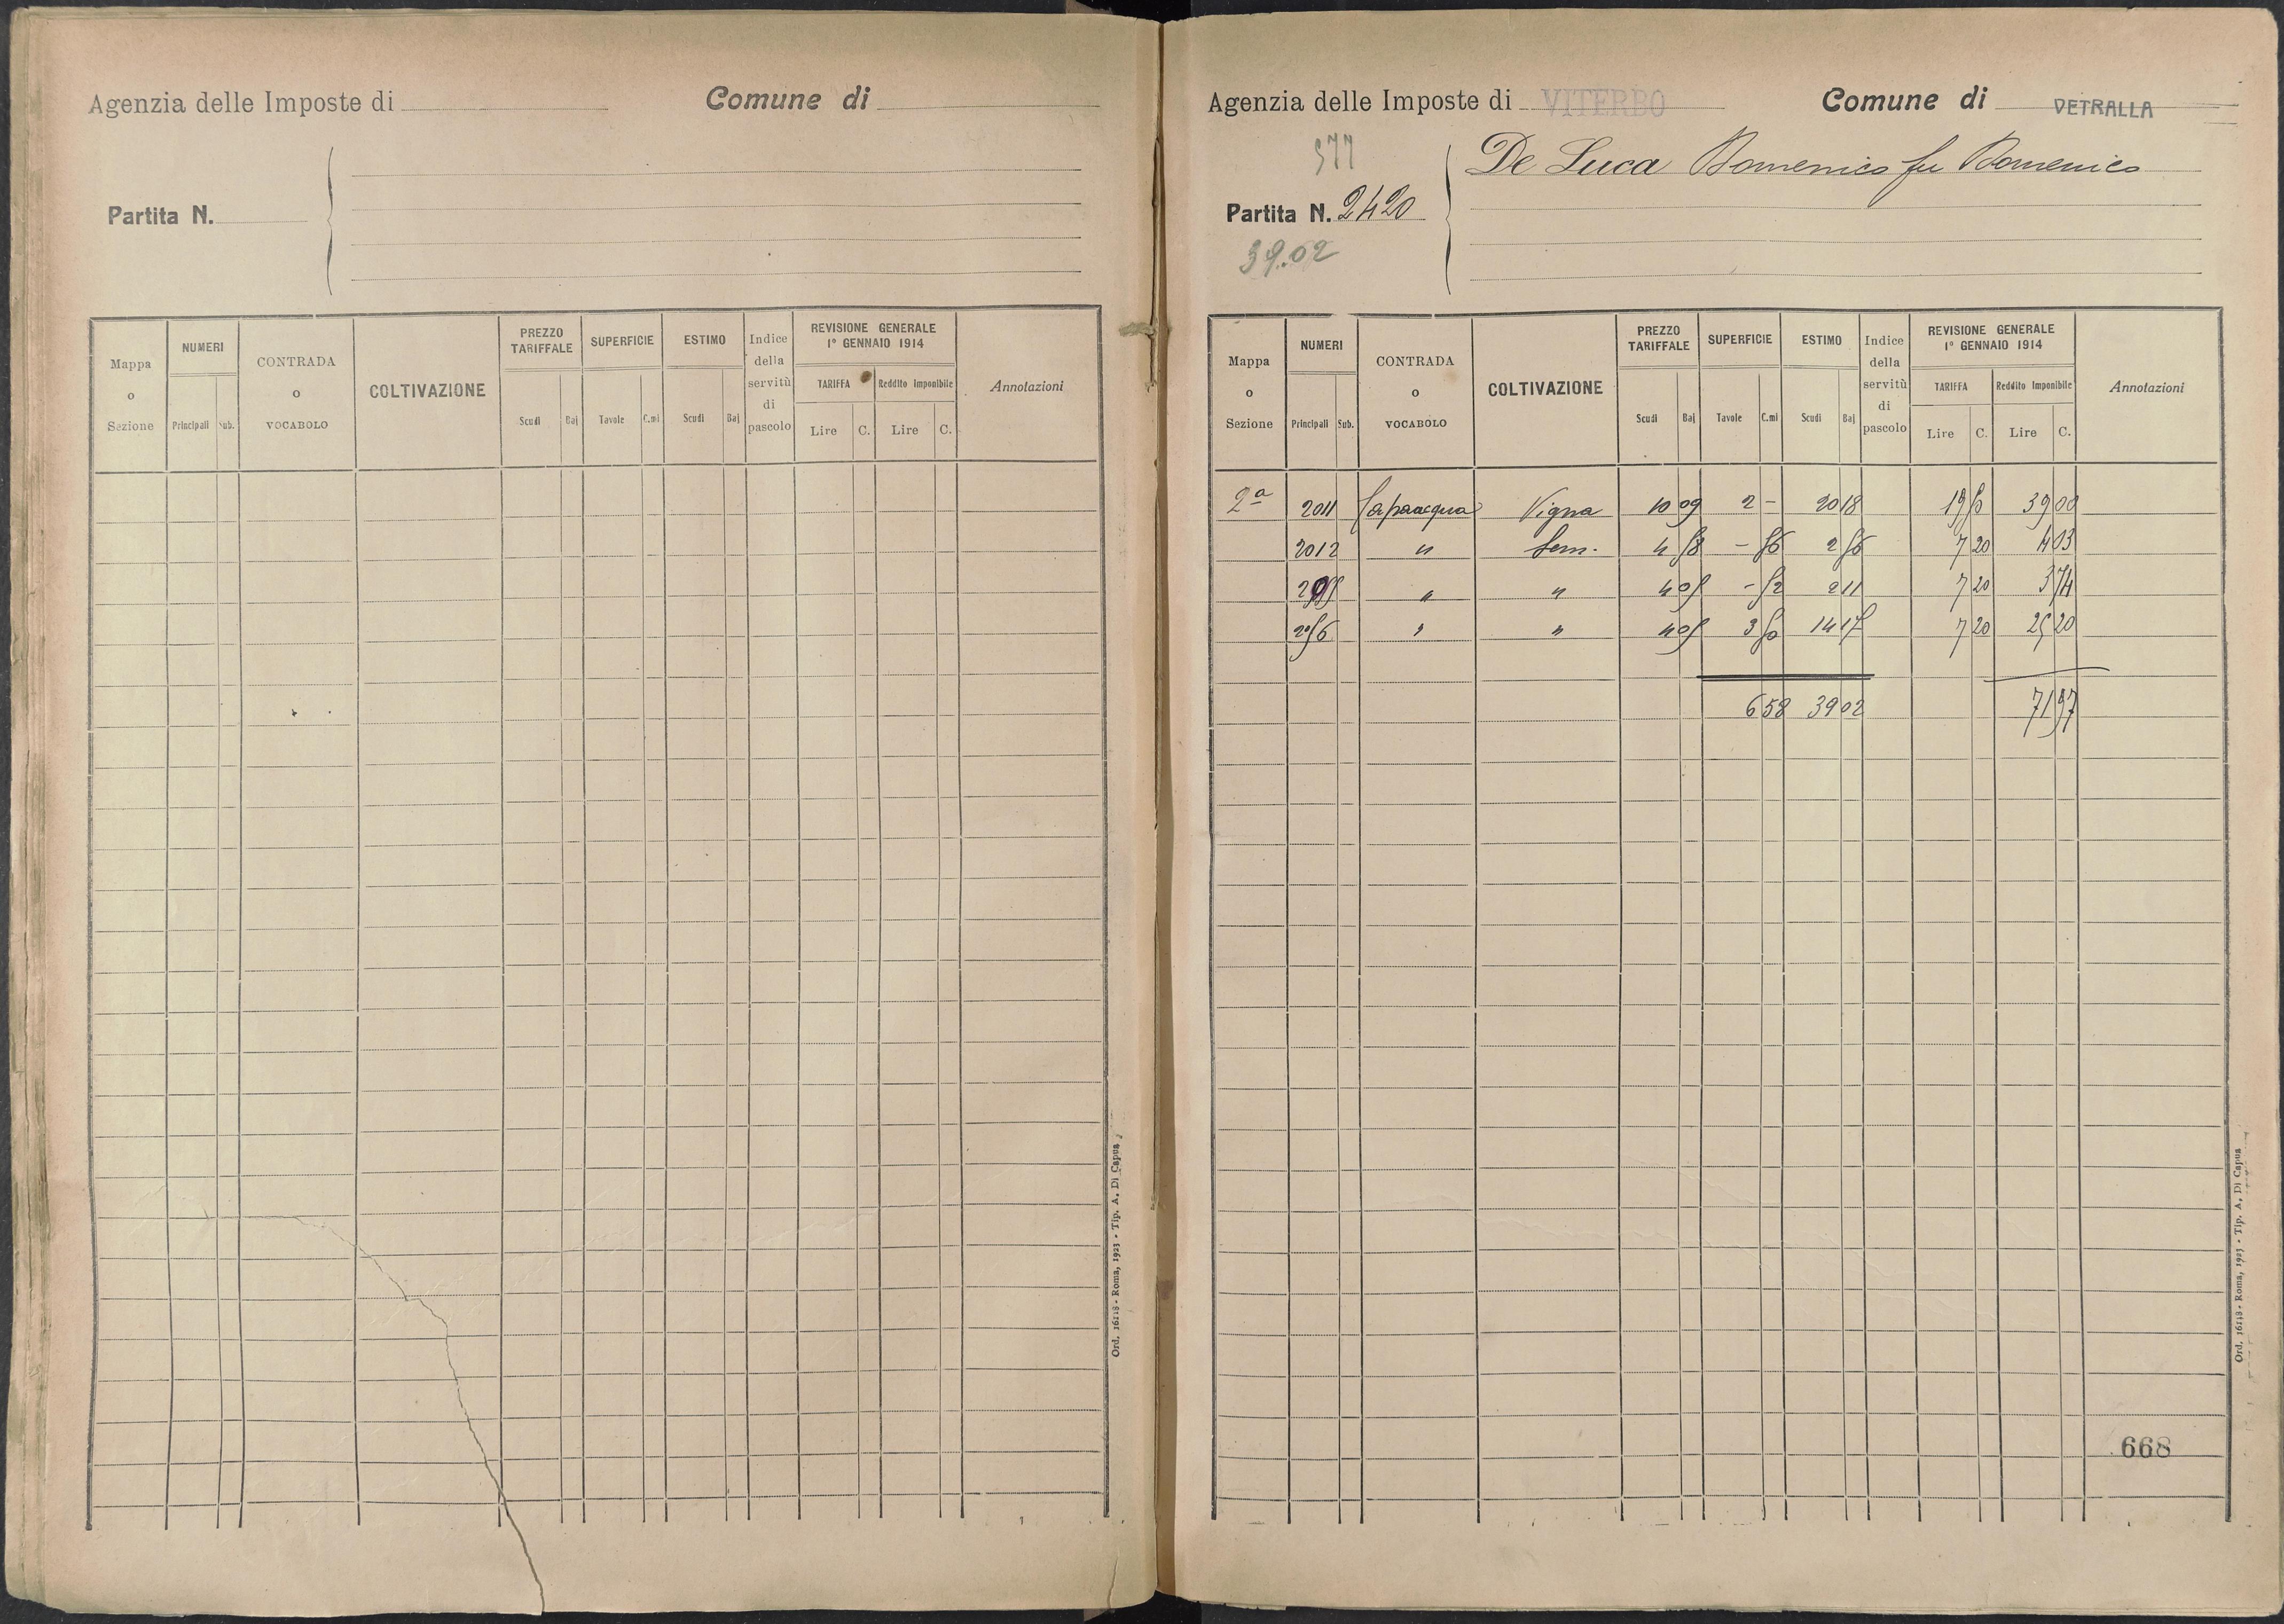 Agenzia delle Imposte di
Comune di
Partita N.
Mappa o Sezione
NUMERI
Principali Sub.
CONTRADA o VOCABOLO
COLTIVAZIONE
PREZZO TARIFFALE
Scudi Baj
SUPERFICIE
Tavole C.mi
ESTIMO
Scudi Baj
Indice della servitù di pascolo
REVISIONE GENERALE 1° GENNAIO 1914
TARIFFA Reddito Imponibile
Lire C. Lire C.
Annotazioni
Ord. 16118 - Roma, 1923 - Tip. A. Di Capua
Agenzia delle Imposte di VITERBO
Comune di VETRALLA
577
De Luca Domenico fu Domenico
Partita N. 2420
39.02
Mappa o Sezione
NUMERI
Principali Sub.
CONTRADA o VOCABOLO
COLTIVAZIONE
PREZZO TARIFFALE
Scudi Baj
SUPERFICIE
Tavole C.mi
ESTIMO
Scudi Baj
Indice della servitù di pascolo
REVISIONE GENERALE 1° GENNAIO 1914
TARIFFA Reddito Imponibile
Lire C. Lire C.
Annotazioni
2ª 2011 Capacqua Vigna 10 09 2 - 20 18 19 50 39 00
2012 " Sem. 4 58 - 56 2 56 7 20 4 03
" " 4 05 - 52 2 11 7 20 3 74
2056 " " 4 05 3 50 14 17 7 20 25 20
6 58 39 02 71 97
668
Ord. 16118 - Roma, 1923 - Tip. A. Di Capua